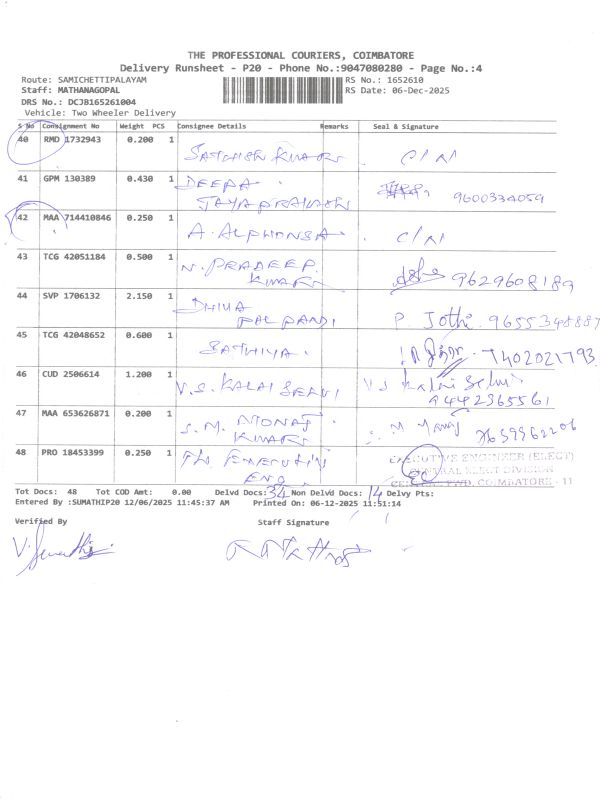 THE PROFESSIONAL COURIERS, COIMBATORE
Delivery Runsheet - P20 - Phone No.:9047080280 - Page No.:4
Route: SAMICHETTIPALAYAM RS No.: 1652610
Staff: MATHANAGOPAL RS Date: 06-Dec-2025
DRS No.: DCJB165261004
Vehicle: Two Wheeler Delivery
S No Consignment No Weight PCS Consignee Details Remarks Seal & Signature
40 RMD 1732943 0.200 1 SATHISH KUMAR C/N
41 GPM 130389 0.430 1 DEEPA
JAYAPRAKASH 9600334059
42 MAA 714410846 0.250 1 A. ALPHONSA C/N
43 TCG 42051184 0.500 1 N. PRADEEP
KUMAR 9629608189
44 SVP 1706132 2.150 1 DHIVA
PALPANDI P. Jothi. 9655348887
45 TCG 42048652 0.600 1 SATHIYA. 7402021793
46 CUD 2506614 1.200 1 V.S. KALAI SELVI V S Kalai Selvi
9442365561
47 MAA 653626871 0.200 1 S.M. MONAJ
KUMAR
48 PRO 18453399 0.250 1 THE EXECUTIVE
ENG
EXECUTIVE ENGINEER (ELECT)
CENTRAL ELECT DIVISION
CENTRAL PWD, COIMBATORE - 11
Tot Docs: 48 Tot COD Amt: 0.00 Delvd Docs: 34 Non Delvd Docs: 14 Delvy Pts:
Entered By :SUMATHIP20 12/06/2025 11:45:37 AM Printed On: 06-12-2025 11:51:14
Verified By Staff Signature